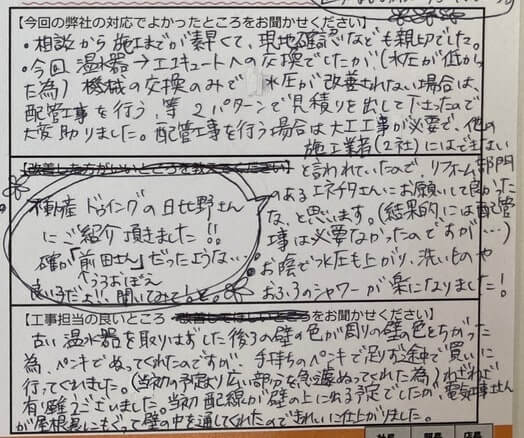 【今回の弊社の対応でよかったところをお聞かせください】
・相談から施工までが素早くて、現地確認なども親切でした。
・今回 温水器→エコキュートへの交換でしたが(水圧が低かっ
た為) 機械の交換のみで 水圧が改善されない場合は、
配管工事を行う、等 2パターンで見積りを出して下さったので
大変助りました。配管工事を行う場合は大工工事が必要で、他の
施工業者(2社)にはできない
【改善した方がいいところを教えてください】
と言われていたので リフォーム部門
のあるエネチタさんにお願いして良かった
な、と思います。(結果的には配管
工事は必要なかったのですが…)
お陰で水圧も上がり、洗いものや
おふろのシャワーが楽になりました!
不動産 ドゥイングの日比野さん
にご紹介頂きました!!
確か「前田さん」だったような…
↑うろおぼえ
良い方だよ!、聞いてみて!と。
【工事担当の良いところ 改善してほしいところをお聞かせください】
古い温水器を取りはずした後ろの壁の色が周りの壁の色とちがった
為、ペンキでぬってくれたのですが、手持ちのペンキで足りず途中で買いに
行ってくれました。(当初の予定より広い部分を急遽ぬってくれた為)わざわざ
有難うございました。当初 配線が壁の上に出る予定でしたが、電気工事士さん
が屋根裏にもぐって壁の中を通してくれたのできれいに仕上がりました。
社長
店長